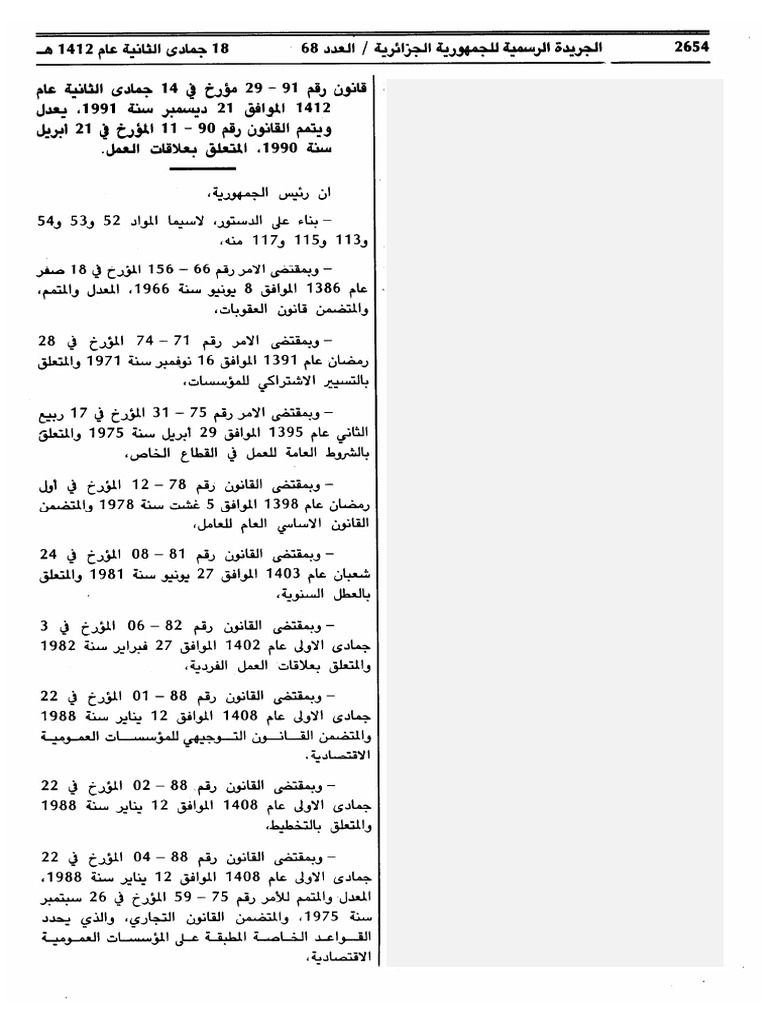 2654
الجريدة الرسمية للجمهورية الجزائرية / العدد 68
18 جمادى الثانية عام 1412 هـ
قانون رقم 91 – 29 مؤرخ في 14 جمادى الثانية عام
1412 الموافق 21 ديسمبر سنة 1991، يعدل
ويتمم القانون رقم 90 – 11 المؤرخ في 21 أبريل
سنة 1990، المتعلق بعلاقات العمل.
ان رئيس الجمهورية،
– بناء على الدستور، لاسيما المواد 52 و53 و54
و113 و115 و117 منه،
– وبمقتضى الامر رقم 66 – 156 المؤرخ في 18 صفر
عام 1386 الموافق 8 يونيو سنة 1966، المعدل والمتمم،
والمتضمن قانون العقوبات،
– وبمقتضى الامر رقم 71 – 74 المؤرخ في 28
رمضان عام 1391 الموافق 16 نوفمبر سنة 1971 والمتعلق
بالتسيير الاشتراكي للمؤسسات،
– وبمقتضى الامر رقم 75 – 31 المؤرخ في 17 ربيع
الثاني عام 1395 الموافق 29 أبريل سنة 1975 والمتعلق
بالشروط العامة للعمل في القطاع الخاص،
– وبمقتضى القانون رقم 78 – 12 المؤرخ في أول
رمضان عام 1398 الموافق 5 غشت سنة 1978 والمتضمن
القانون الاساسي العام للعامل،
– وبمقتضى القانون رقم 81 – 08 المؤرخ في 24
شعبان عام 1403 الموافق 27 يونيو سنة 1981 والمتعلق
بالعطل السنوية،
– وبمقتضى القانون رقم 82 – 06 المؤرخ في 3
جمادى الاولى عام 1402 الموافق 27 فبراير سنة 1982
والمتعلق بعلاقات العمل الفردية،
– وبمقتضى القانون رقم 88 – 01 المؤرخ في 22
جمادى الاولى عام 1408 الموافق 12 يناير سنة 1988
والمتضمن القانون التوجيهي للمؤسسات العمومية
الاقتصادية.
– وبمقتضى القانون رقم 88 – 02 المؤرخ في 22
جمادى الاولى عام 1408 الموافق 12 يناير سنة 1988
والمتعلق بالتخطيط،
– وبمقتضى القانون رقم 88 – 04 المؤرخ في 22
جمادى الاولى عام 1408 الموافق 12 يناير سنة 1988،
المعدل والمتمم للأمر رقم 75 – 59 المؤرخ في 26 سبتمبر
سنة 1975، والمتضمن القانون التجاري، والذي يحدد
القواعد الخاصة المطبقة على المؤسسات العمومية
الاقتصادية،